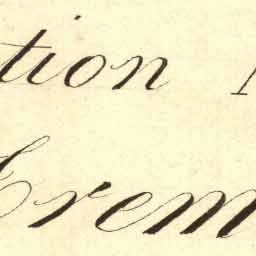 tion
Crem